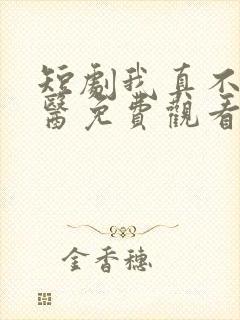 短劇我真不
醫免費觀看
金香穗